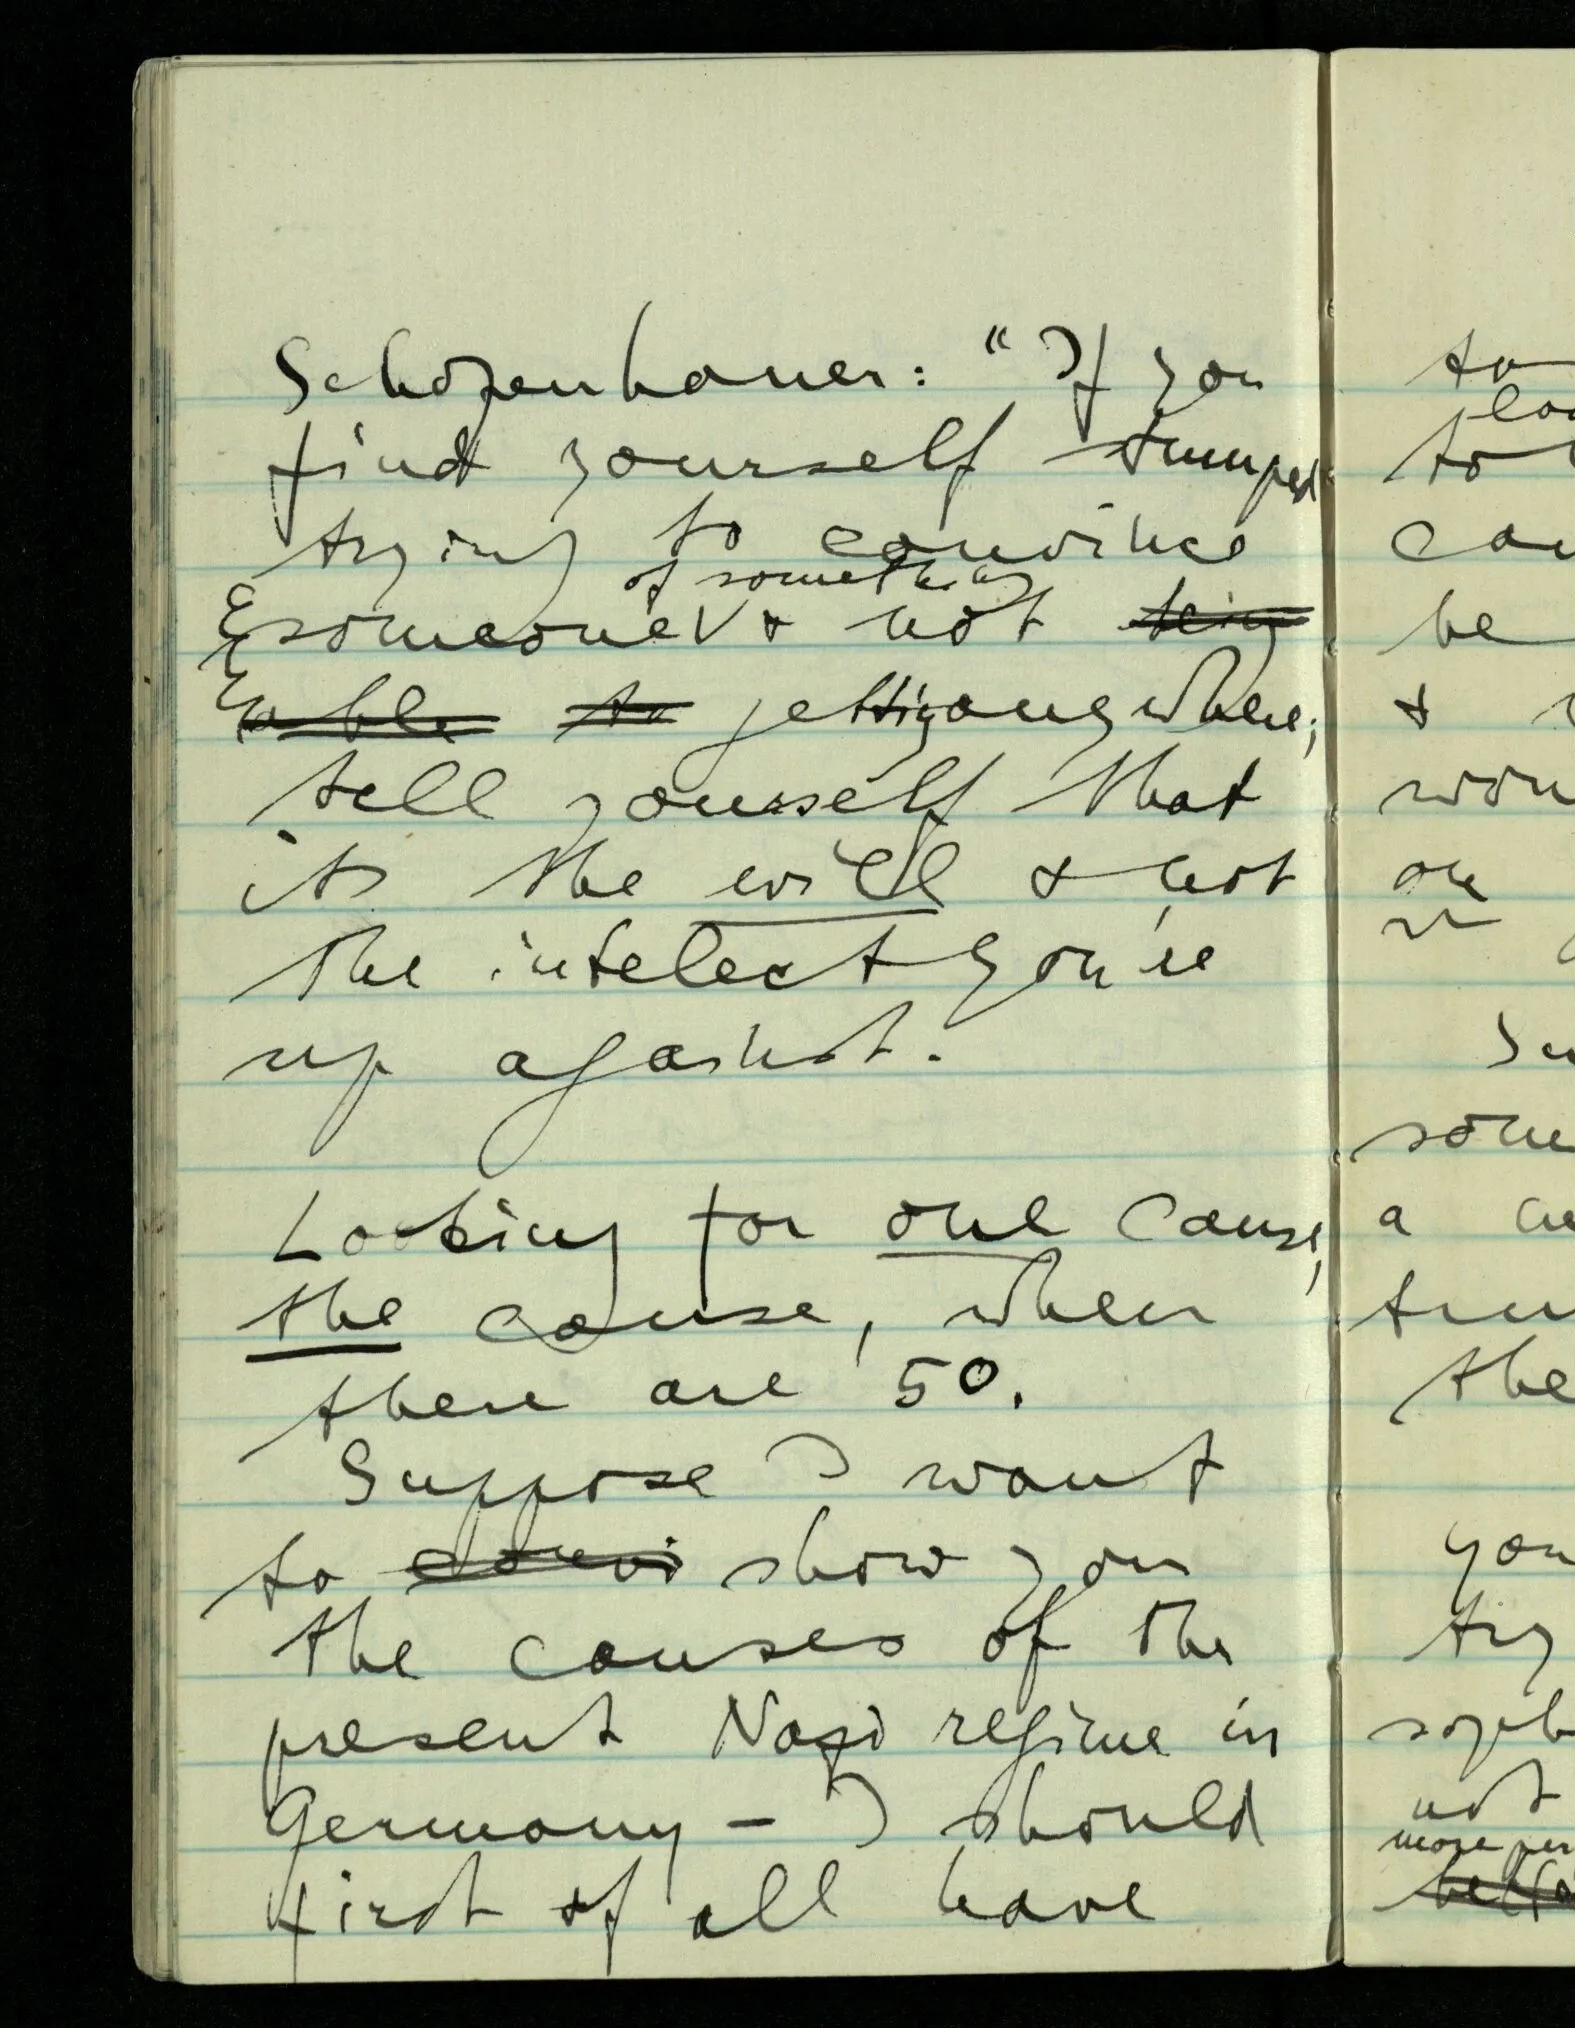 Schopenhauer: "If you
find yourself stumped
trying to convince
of something
someone & not being
able to getting anywhere;
tell yourself that
it's the will & not
the intelect you're
up against.
Looking for one cause,
the cause, when
there are 50.
Suppose I want
to convi show you
the causes of the
present Nazi regime in
Germany – I should
first of all have
to
to
be
&
a
the
not